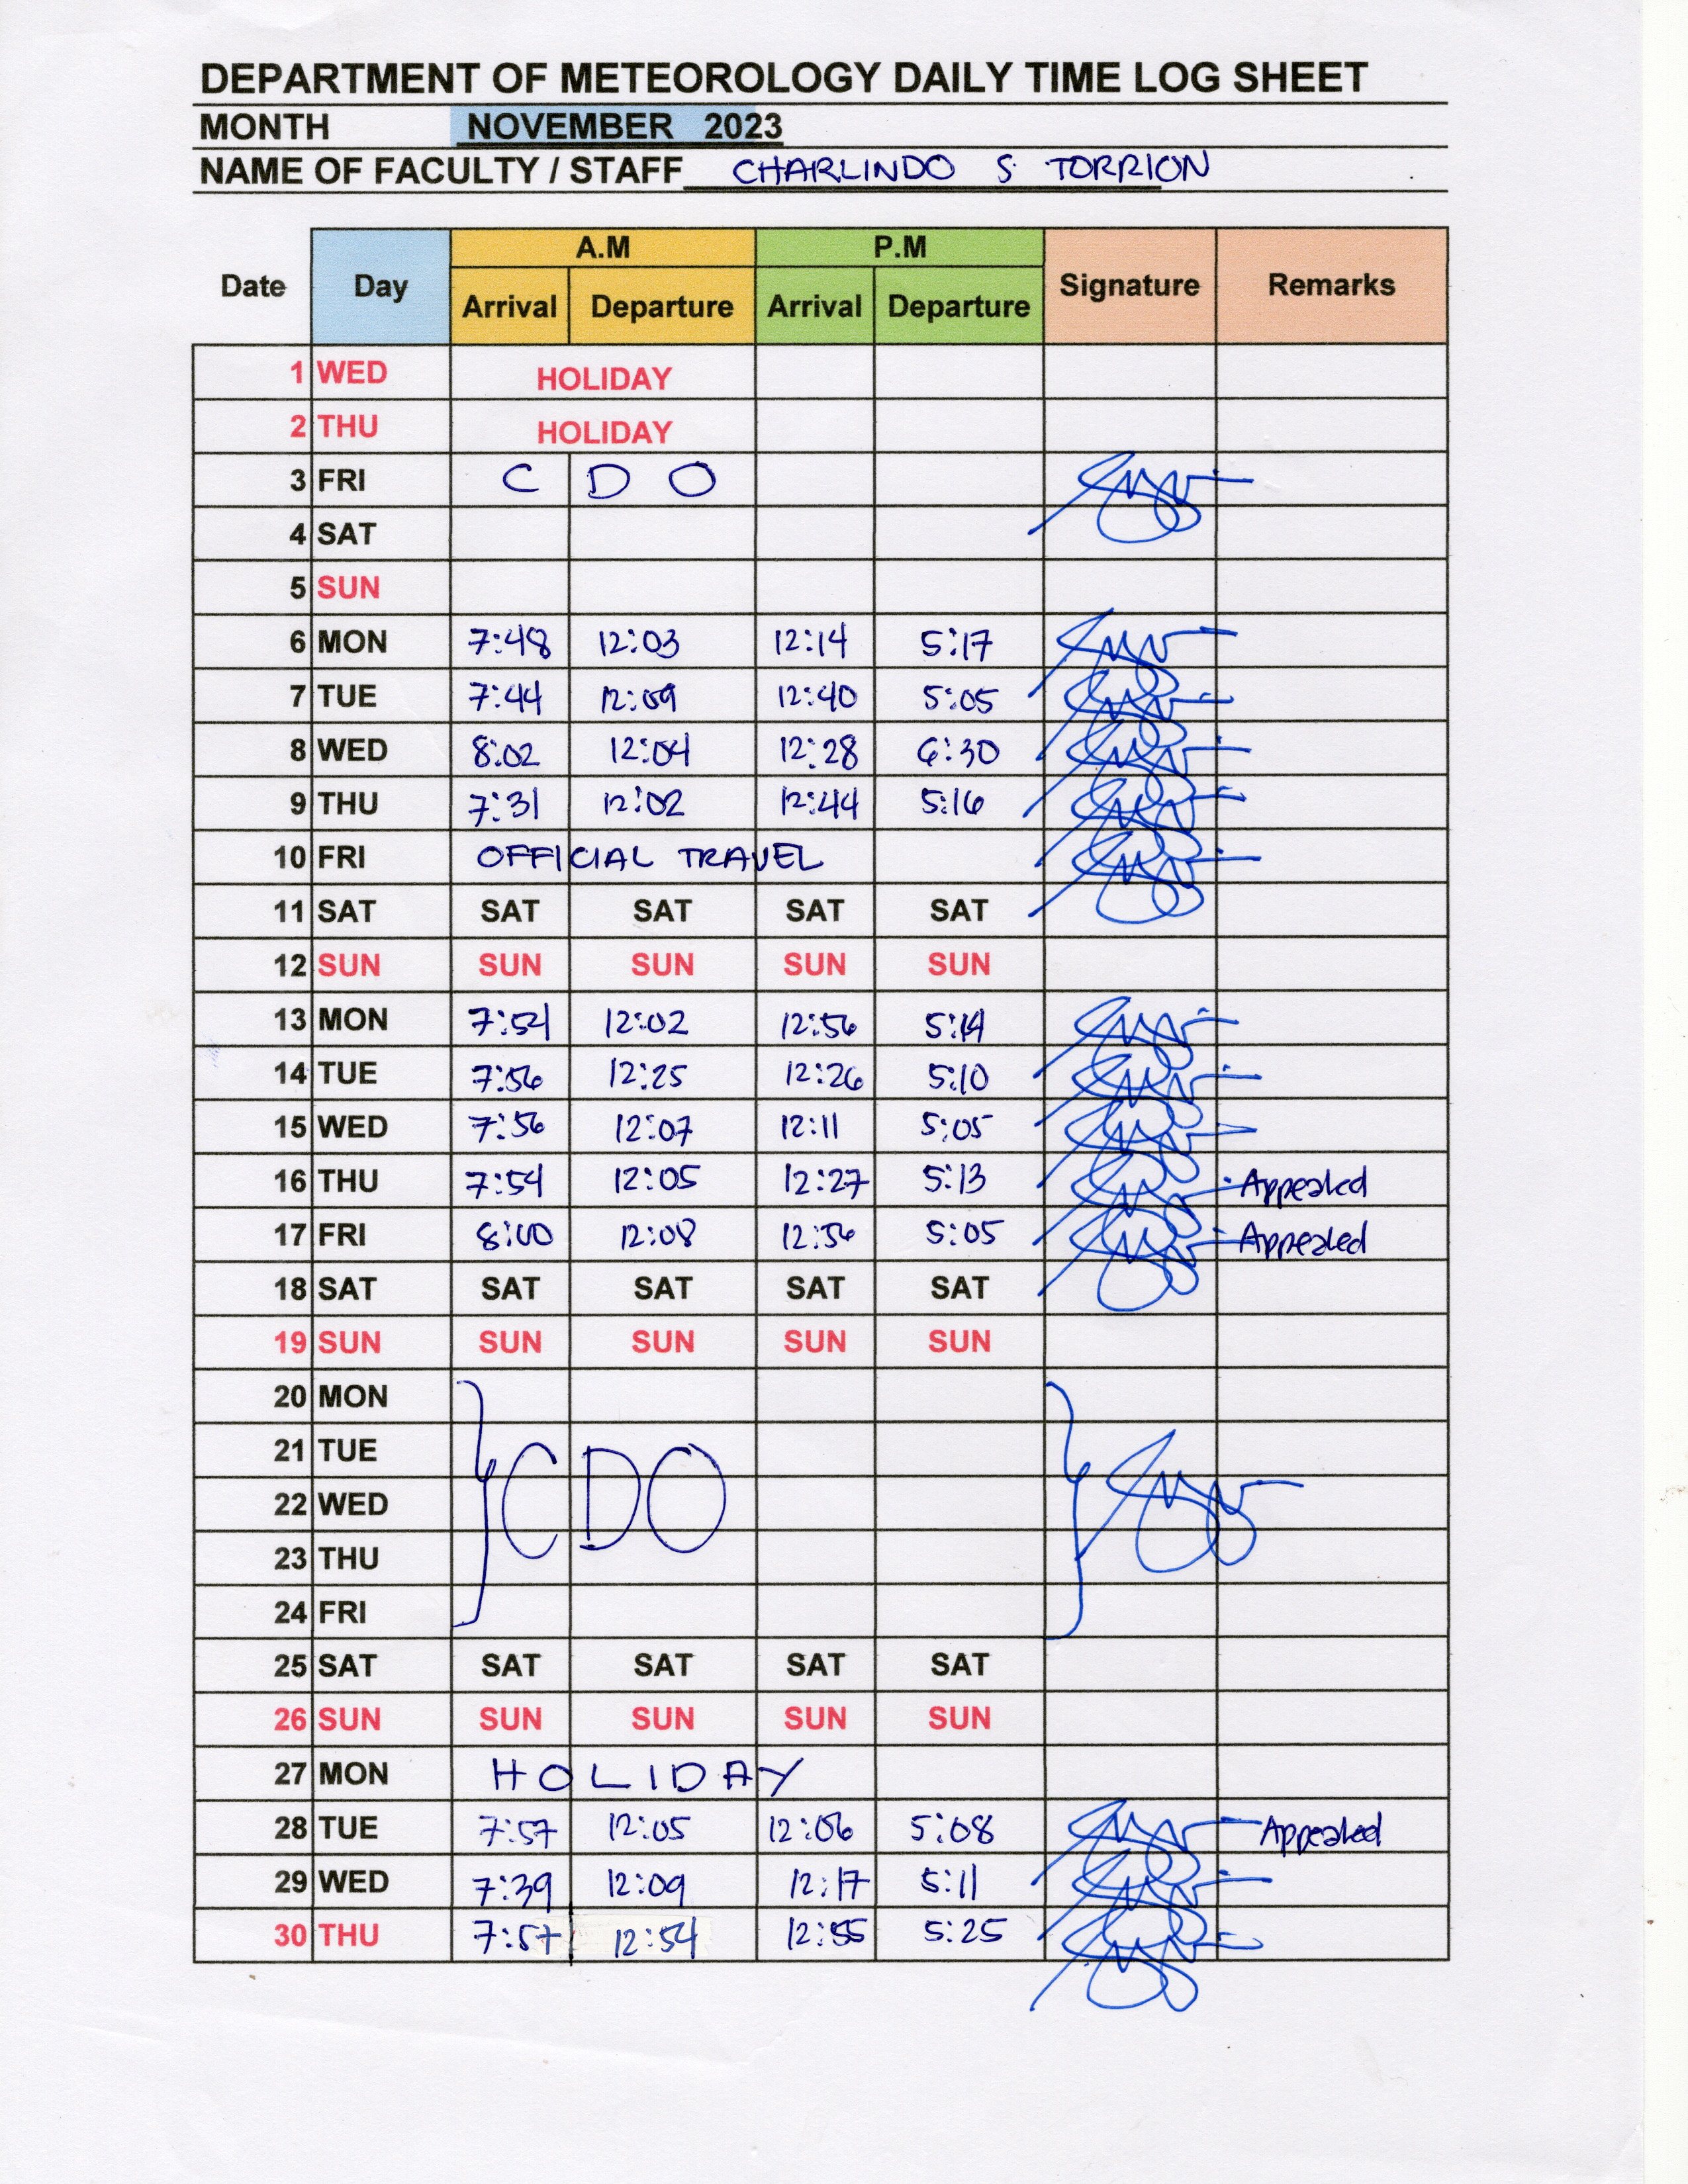 DEPARTMENT OF METEOROLOGY DAILY TIME LOG SHEET
MONTH NOVEMBER 2023
NAME OF FACULTY / STAFF CHARLINDO S TORRION
A.M P.M
Date Day Signature Remarks
Arrival Departure Arrival Departure
1 WED HOLIDAY
2 THU HOLIDAY
3 FRI C D O
4 SAT
5 SUN
6 MON 7:48 12:03 12:14 5:17
7 TUE 7:44 12:09 12:40 5:05
8 WED 8:02 12:04 12:28 6:30
9 THU 7:31 12:02 12:44 5:16
10 FRI OFFICIAL TRAVEL
11 SAT SAT SAT SAT SAT
12 SUN SUN SUN SUN SUN
13 MON 7:54 12:02 12:56 5:14
14 TUE 7:56 12:25 12:26 5:10
15 WED 7:56 12:07 12:11 5:05
16 THU 7:54 12:05 12:27 5:13 Appealed
17 FRI 8:00 12:08 12:56 5:05 Appealed
18 SAT SAT SAT SAT SAT
19 SUN SUN SUN SUN SUN
20 MON
21 TUE
22 WED CDO
23 THU
24 FRI
25 SAT SAT SAT SAT SAT
26 SUN SUN SUN SUN SUN
27 MON HOLIDAY
28 TUE 7:57 12:05 12:06 5:08 Appealed
29 WED 7:39 12:09 12:17 5:11
30 THU 7:57 12:54 12:55 5:25